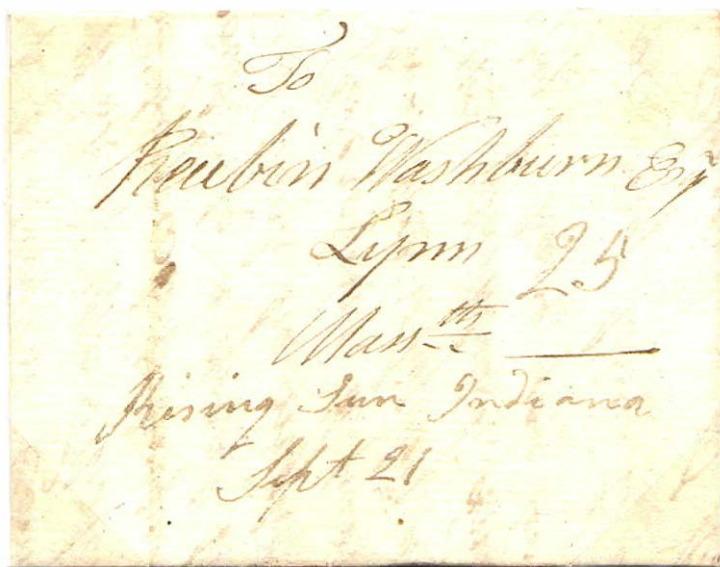 To
Reubin Washburn Esqr
Lynn 25
Massth
Rising Sun Indiana
Sept 21